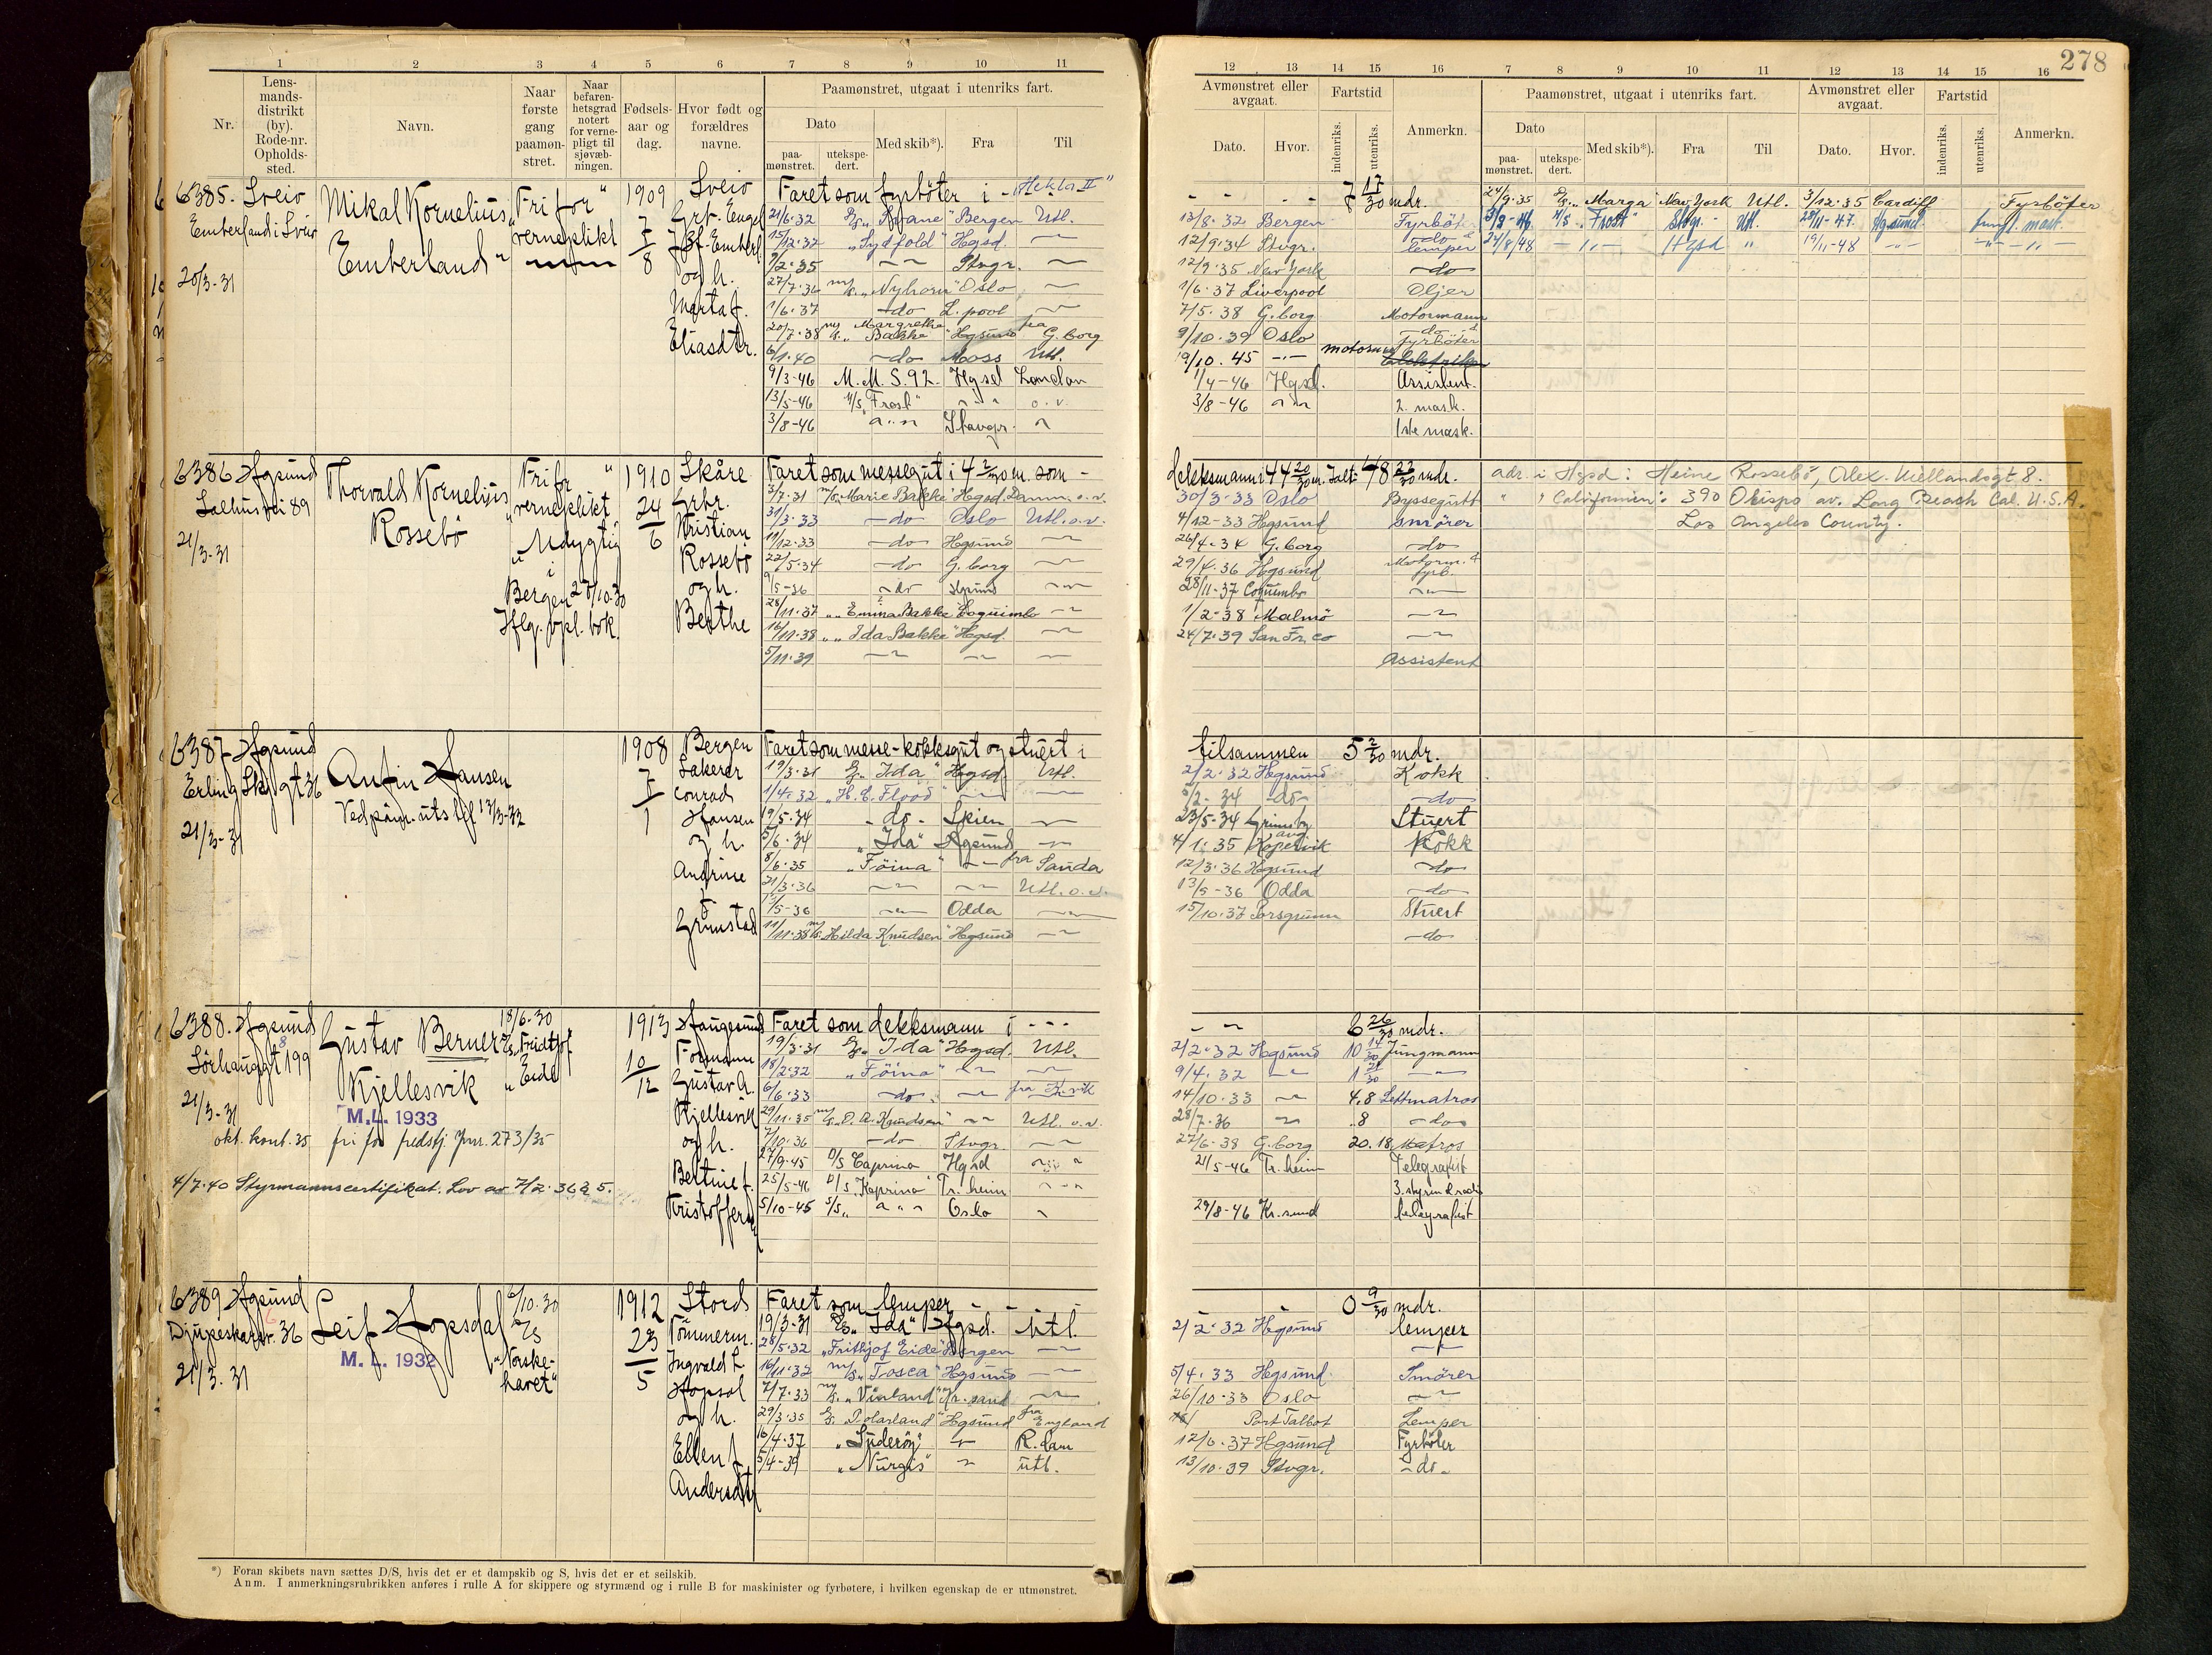 278
1 2 3 4 5 6 7 8 9 10 11
12 13 14 15 16 7 8 9 10 11 12 13 14 15 16
Nr.
Lens-
mands-
distrikt
(by).
Rode-nr.
Opholds-
sted.
Navn.
Naar
første
gang
paamøn-
stret.
Naar
befaren-
hetsgrad
notert
for verne-
pligt til
sjøvæb-
ningen.
Fødsels-
aar og
dag.
Hvor født og
forældres
navne.
Paamønstret, utgaat i utenriks fart.
Dato
paa-
mønstret.
utekspe-
dert.
Med skib*).
Fra
Til
Avmønstret eller
avgaat.
Dato.
Hvor.
Fartstid
indenriks.
utenriks.
Anmerkn.
Paamønstret, utgaat i utenriks fart.
Dato
paa-
mønstret.
utekspe-
dert.
Med skib*).
Fra
Til
Avmønstret eller
avgaat.
Dato.
Hvor.
Fartstid
indenriks.
utenriks.
Anmerkn.
6385. Sveio
Emberland i Sveio
20/3-31
Mikal Kornelius
Emberland
"Fri for"
vernepligt
1909
7
8
Sveio
og h.
Marta f.
Eliasdtr.
Faret som fyrböter i "Hekla II" - - - 7 17/30 mdr.
21/6.32 D/S "Svane" Bergen Utl. 13/8.32 Bergen Fyrböter
15/12.32 "Sydfold" Hgsd. 12/9.34 Stvgr. lemper
9/2.35 Stvgr. 12/9.35 New York do
27/7.36 m/s "Nyhorn" Oslo 1/6.37 Liverpool Oljer
1/6.37 do L.pool 7/5.38 G.borg Motormann
20/7.38 m/s "Margrethe Bakke" Hgsund fra G.borg 9/10.39 Oslo fyrböter
6/1.40 do Moss Utl. 19/10.45 motorm.
9/3-46 M.M.S.92. Hgsd London 1/4-46 Hgsd. Assistent.
13/5-46 M/S "Frost" o.v. 3/8-46 2. mask.
3/8-46 Stavgr. 1ste mask.
24/9.35 D/S "Marga" New York Utl. 3/12.35 Cardiff Fyrböter
3/8-46 M/S "Frost" Stvgr. Utl. 28/11-47. Hgsund. fung 1. mask.
24/8/48 Hgsd 19/11-48
6386 Hgsund
Salhusvei 89
21/3-31
Thorvald Kornelius
Rossebö
"Fri for
vernepligt"
"Udygtig"
i
Bergen 27/10.30
Iflg. vpl. bok.
1910
24
6
Skåre
Grbr.
Kristian
Rossebö
og h.
Berthe
Faret som messegut i 4 2/30 m. som - dekksmann i 44 20/30 m. Ialt: 48 22/30 mdr.
3/7.31 m/s "Marie Bakke" Hgsd. Danm. o.v. 30/3.33 Oslo Byssegutt
31/3.33 do Oslo Utl. o.v. 4/12-33 Hgsund smörer
11/12.33 do Hgsund 26/4.34 G.borg do
22/5.34 do G.borg 29/4.36 Hgsund Motorm. &
fyrb.
9/5-36 do Hgsund 28/11-37 Coquimbo
28/11.37 "Emma Bakke" Coquimbo 1/2-38 Malmö
16/11.38 "Ida Bakke" Hgsd. 24/7.39 San Fr.co
5/11.39 Assistent
adr. i Hgsd: Heine Rossebö, Alex. Kiellandsgt 8.
" " California: 390 Obispo av. Long Beach Cal. U.S.A.
Los Angeles County.
6387 Hgsund
Erling Skj. gt 36
21/3-31
Anfin Hansen
1908
7
1
Bergen
Lakerer
Conrad
Hansen
og h.
Andrine
f.
Grimstad
Faret som messe-kokksgut og stuert i tilsammen 5 2/30 mdr.
19/3.31 D/S "Ida" Hgsd. Utl. 2/2.32 Hgsund Kokk
1/4.32 "H.C. Flood" 5/2-34 do do
19/5.34 do Skien 23/5-34 Grimsby Stuert
5/6.34 "Ida" Hgsund 4/1.35 Kopervik Kokk
8/6.35 "Föina" fra Sauda 12/3.36 Hgsund do
21/3.36 Utl. o.v. 13/5-36 Odda do
15/5-36 Odda 15/10.37 Porsgrunn Stuert
11/11.38 m/s "Hilda Knudsen" Hgsund do
6388. Hgsund
Sörhauggt 199
21/3-31
Gustav Berner
Kjellesvik
M.L. 1933
18/6.30
D/S "Fridtjof
Eide"
okt. kont. 35 fri for fredstj. Jnr. 273/35
4/7.40 Styrmannscertifikat. Lov av 7/2.36 § 5.
1913
10
12
Haugesund
Formann
Gustav A.
Kjellesvik
og h.
Bertine f.
Kristoffersen
Faret som dekksmann i - - - 6 26/30 mdr.
19/3.31 D/S "Ida" Hgsd. Utl. 2/2.32 Hgsund 10 14/30 Jungmann
18/2.32 "Föina" 9/4.32 1 21/30
6/6.33 do fra K.vik 14/10.33 4,8 Lettmatros
29/11.35 m/s "O.A. Knudsen" Utl. o.v. 28/7.36 8 do
7/10.36 do Stvgr. 27/6-38 G.borg 20.18 Matros
27/9-45 D/S Caprino Hgsd 21/5-46 Tr.heim Telegrafist
25/5-46 D/S "Kaprino" Tr.heim 3. styrm & radio
5/10-45 S/S Oslo 29/8-46 Kr.sund telegrafist
6389 Hgsund
Djupeskarsv. 36
21/3.31
Leif Hopsdal
M.L. 1932
6/10.30
D/S
"Norske-
havet"
1912
23
5
Stord
Tömmerm.
Ingvald L
og h.
Ellen f.
Andersdtr
Faret som lemper - - - 0 9/30 mdr.
19/3-31 D/S "Ida" Hgsd. Utl. 2/2.32 Hgsund lemper
28/5.32 "Frithjof Eide" Bergen
16/11.32 m/s "Tosca" Hgsund 5/4.33 Hgsund Smörer
7/7.33 m/s "Vinland" Kr.sand 26/10-33 Oslo
29/3.35 D/S "Polarland" Hgsund fra England Port Talbot Lemper
16/4.37 "Suderöy" R.dam 12/6.37 Hgsund Fyrböter
5/4-39 "Nurgis" utl. 13/10.39 Stvgr. do.
*) Foran skibets navn sættes D/S, hvis det er et dampskib og S, hvis det er et seilskib.
Anm. I anmerkningsrubrikken anføres i rulle A for skippere og styrmænd og i rulle B for maskinister og fyrbøtere, i hvilken egenskap de er utmønstret.